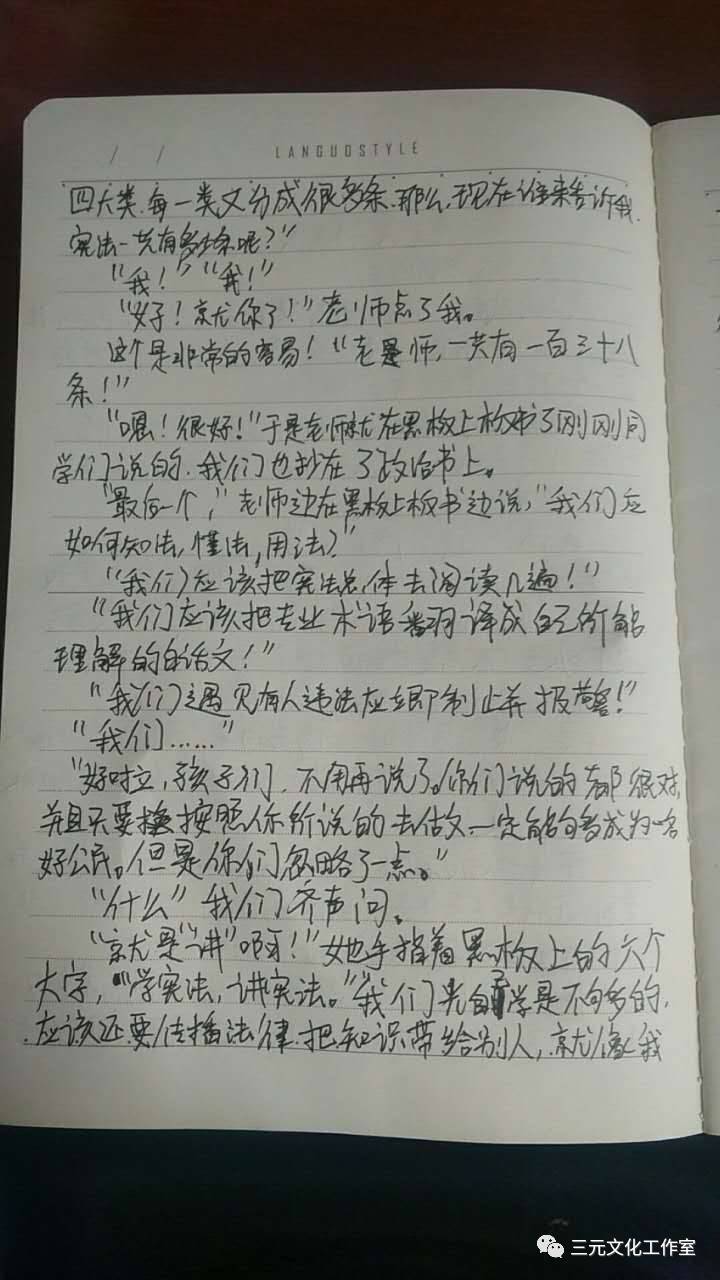 / /
LANGUOSTYLE
四大类.每一类又分成很多条.那么,现在谁来告诉我.
宪法一共有多少条呢?”
“我!”“我!”
“好!就你了!”老师点了我。
这个是非常的容易!“老师,一共有一百三十八
条!”
“嗯!很好!”于是老师就在黑板上板书了刚刚同
学们说的.我们也抄在了政治书上。
“最后一个,”老师边在黑板上板书边说,“我们应
如何知法,懂法,用法?”
“我们应该把宪法总体去阅读几遍!”
“我们应该把专业术语翻译成自己所能
理解的白话文!”
“我们遇见有人违法应立即制止并报警!”
“我们……”
“好啦,孩子们.不用再说了。你们说的都很对,
并且只要按照你所说的去做,一定能够成为一名
好公民。但是你们忽略了一点。”
“什么”我们齐声问。
“就是“讲”啊!”她手指着黑板上的六个
大字,“学宪法,讲宪法。”“我们光自学是不够多的.
应该还要传播法律.把知识带给别人,就像我
三元文化工作室